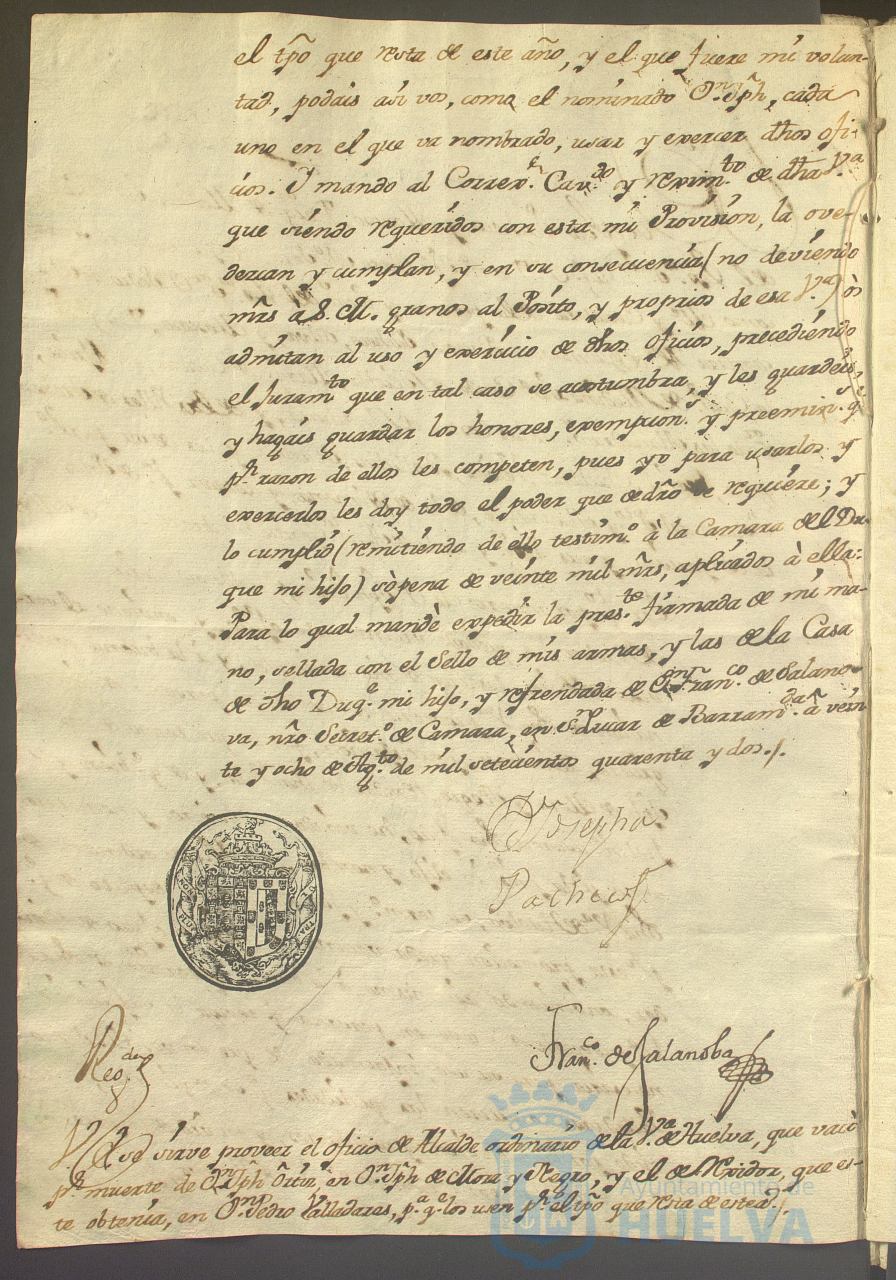 el tpõ que resta de este año, y el que fuere mi volun-
tad, podais asi vos, como el nominado Dn. Jph, cada
uno en el que va nombrado, usar y exercer dhos ofi-
cios. Y mando al Correxr. Cavdo y reximto de dha Va
que siendo requeridos con esta mi Provision, la ove-
dezcan y cumplan, y en su consecuencia (no deviendo
mrs à S. M. granos al Posito, y proprios de esa Va) òs
admitan al uso y exercicio de dhos oficios, precediendo
el Juramto que en tal caso se acostumbra, y les guardeis,
y hagais guardar los honores, exempcions. y preemins. q
pr. razon de ellos les competen, pues yo para usarlos y
exercerlos les doy todo el poder que de dro se requiere; y
lo cumplid (remitiendo de ello testimo. à la Camara del Du-
que mi hijo) sòpena de veinte mil mrs, aplicados à ella:
Para lo qual mandè expedir la preste. firmada de mi ma-
no, sellada con el Sello de mis armas, y las de la Casa
de dho Duqe. mi hijo, y refrendada de Dn. Franco. de Salano-
va, nro Secreto. de Camara, en Sn. Lucar de Barramda. à vein
te y ocho de Agto de mil setecientos quarenta y dos./.
Josepha
Pacheco
Franco. de Salanoba
Regda
V. E. se sirve proveer el oficio de Alcalde ordinario de la Va. de Huelva, que vacò
pr. muerte de Dn. Jph Ortiz, en Dn. Jph de Mora y Negro, y el de Rexidor, que es-
te obtenia, en Dn. Pedro Valladares, pa. qe. los usen pr. el tpõ que resta de este a./.
Ayuntamiento de
HUELVA